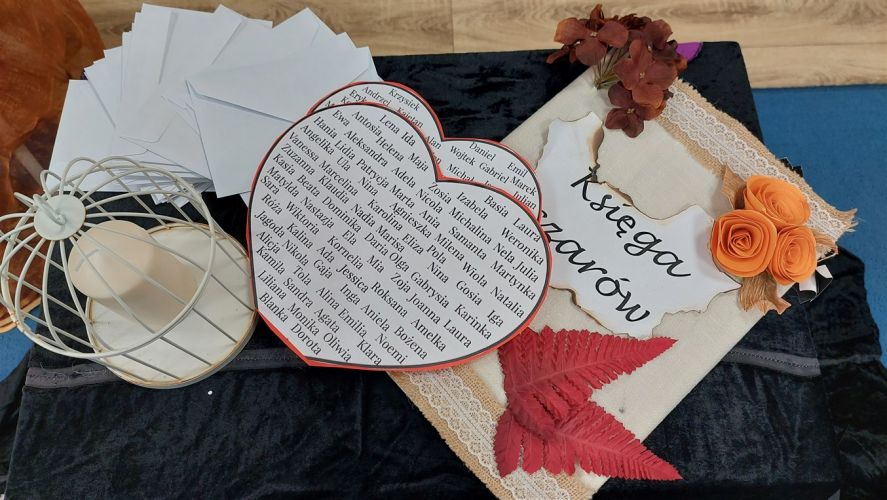 Krzysiek
Andrzej
Eryk Kajetan
Daniel Emil
Alan Wojtek Gabriel Marek
Michał Julian
Lena Ida
Antosia Helena Maja
Ewa Aleksandra Adela Zosia Izabela Basia Laura
Hania Lidia Patrycja Nicola Michalina Weronika
Angelika Ula Marta Ania Samanta Nela Julia
Vanessa Marcelina Nina Agnieszka Milena Martynka
Zuzanna Klaudia Karolina Eliza Pola Wiola Natalia
Kasia Beata Dominika Nadia Marisa Nina Gosia Iga
Marylka Nastazja Ela Daria Olga Gabrysia Karinka
Sara Wiktoria Kornelia Mia Zoja Joanna Laura
Róża Kalina Ada Jessica Roksana Amelka
Jagoda Nikola Gaja Inga Aniela Bożena
Alicja Tola Alina Emilia Noemi
Kamila Sandra Agata Klara
Liliana Monika Oliwia
Blanka Dorota
Księga
czarów